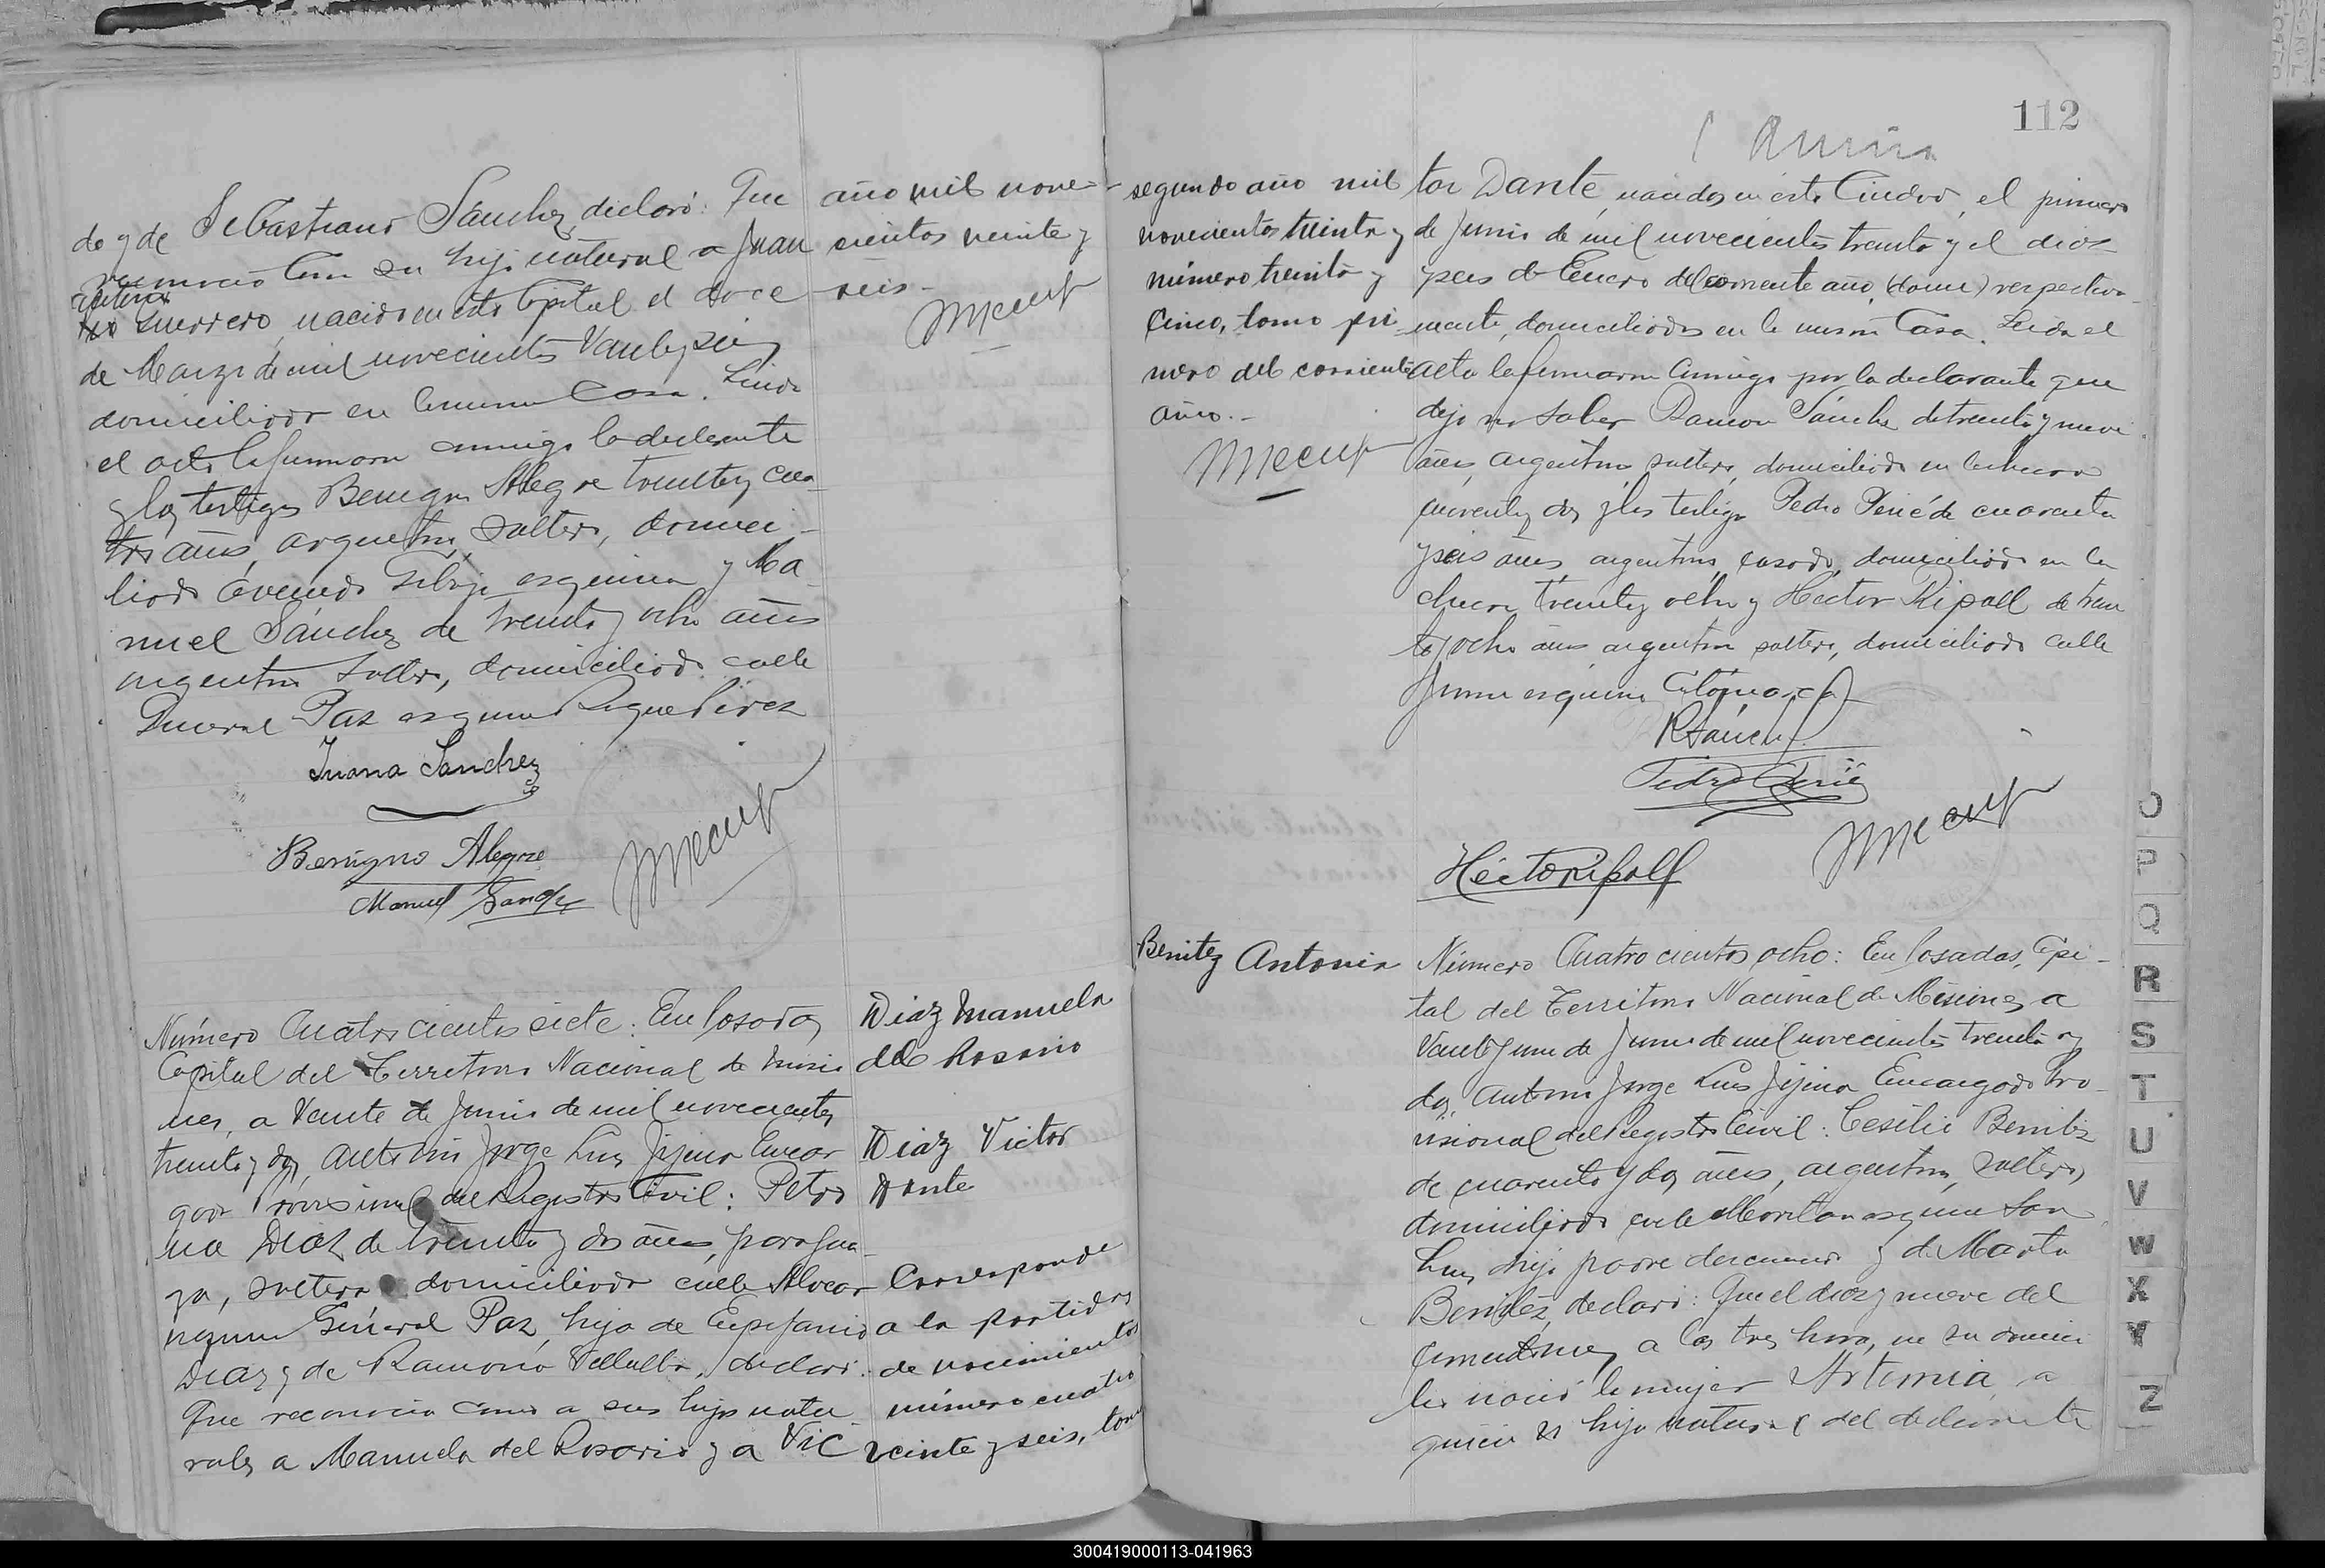 de y de Sebastiana Sánchez, declaró: Que
reconocia como su hijo natural a Juan
Guerrero, nacido en esta Capital el doce
de Marzo de mil novecientos veinte y seis
domiciliado en la misma Casa. Leida
el acta la firmaron conmigo la declarante
y los testigos Benigno Alegre treinta y cua-
tro años, argentino, soltero, domici-
liado Avenida esquina y Ma-
nuel Sánchez de treinta y ocho años
argentino soltero, domiciliado calle
General Paz esquina Roque Perez
Juana Sanchez
Benigno Alegre
Manuel Sanchez
año mil nove-
cientos veinte y
seis.-
Número Cuatrocientos siete: En Posadas
Capital del Territorio Nacional de Misio
nes, a veinte de Junio de mil novecientos
treinta y dos, ante mi Jorge Luis Jijena Encar
gado Provisional del Registro Civil: Petro
na Diaz de treinta y dos años, paragua-
ya, soltera domiciliada calle Alvear
esquina General Paz, hija de Epifanio
Diaz y de Ramona Villalba, declaró:
Que reconocia como a sus hijos natu
rales a Manuela del Rosario y a Vic
Diaz Manuela
del Rosario
Diaz Victor
Dante
Corresponde
a la partidas
de nacimientos
número cuatro
veinte y seis, tomo
112
segundo año mil
novecientos treinta y
número treinta y
cinco, tomo pri-
mero del corriente
año.-
tor Dante, nacidos en esta Ciudad, el primero
de Junio de mil novecientos treinta y el diez
y seis de Enero del corriente año, respectiva-
mente, domiciliados en la misma Casa. Leida el
acta la firmaron conmigo por la declarante que
dijo no saber Ramon Sánchez de treinta y nueve
años, argentino, soltero, domiciliado en la chacra
cuarenta y dos y los testigos Pedro Perié de cuarenta
y seis años, argentino, casado, domiciliado en la
chacra treinta y ocho y Hector Ripoll de trein
ta y ocho años argentino soltero, domiciliado calle
Junin esquina Catamarca
RSánchez
Pedro Perié
Héctor Ripoll
Benitez Antonia
Número Cuatrocientos ocho: En Posadas, Capi-
tal del Territorio Nacional de Misiones a
veinte y uno de Junio de mil novecientos treinta y
dos, ante mi Jorge Luis Jijena Encargado Pro-
visional del Registro Civil: Cesilio Benitez
de cuarenta y dos años, argentino, soltero,
domiciliado calle esquina San
Luis, hijo padre desconocido y de Marta
Benitez, declaró: Que el diez y nueve del
a las tres horas, en su domici
lio nació la mujer Artemia, a
quien es hija natural del declarante
O
P
Q
R
S
T
U
V
W
X
Y
Z
300419000113-041963